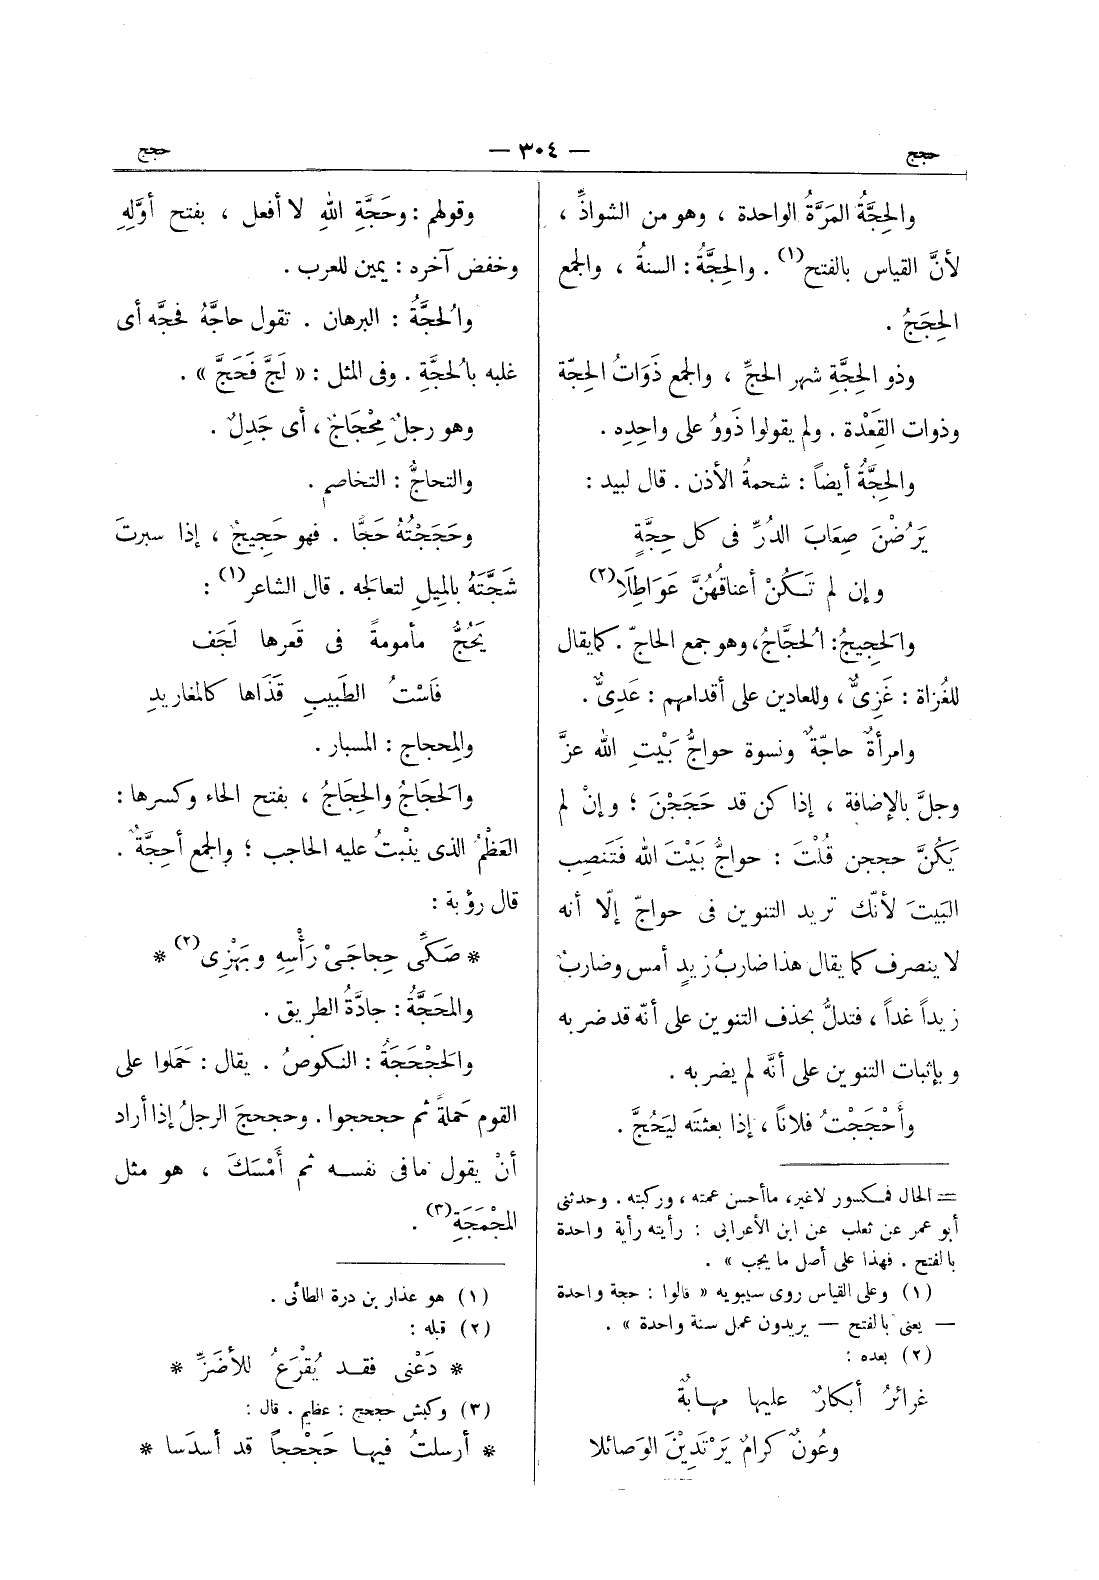 حجج
— ٣٠٤ —
حجج
والحِجَّةُ المَرَّةُ الواحدة ، وهو من الشواذِّ ،
لأنَّ القياس بالفتح(١) . والحِجَّةُ : السنةُ ، والجمع
الحِجَجُ .
وذو الحِجَّةِ شهر الحجِّ ، والجمع ذَوَاتُ الحِجّة
وذوات القِعَدْة . ولم يقولوا ذَوُو على واحِدِه .
والحِجَّةُ أيضاً : شحمةُ الأذن . قال لبيد :
يَرُضْنَ صِعَابَ الدُرِّ فى كل حِجَّةٍ
وإن لم تَكُنْ أعناقُهُنَّ عَوَاطِلَا(٢)
والحَجِيجُ : الحُجَّاجُ، وهو جمع الحاجّ . كما يقال
للغُزاة : غَزِىٌّ ، وللعادين على أقدامهم : عَدِىٌّ .
وامرأةٌ حاجّةٌ ونسوة حواجُّ بَيْتِ الله عزَّ
وجلَّ بالإضافة ، إذا كن قد حَجَجْنَ ؛ وإنْ لم
يَكُنَّ حججن قُلْتَ : حواجُّ بَيْتَ الله فتَنصِب
البَيتَ لأنّك تريد التنوين فى حواجّ إلّا أنه
لا ينصرف كما يقال هذا ضاربُ زيدٍ أمس وضاربٌ
زيداً غداً ، فتدلُّ بحذف التنوين على أنّه قد ضربه
وبإثبات التنوين على أنَّه لم يضربه .
وأَحْجَجْتُ فلاناً ، إذا بعثتَه ليَحُجَّ .
= الحال فمكسور لاغير، ماأحسن عمته ، وركبته . وحدثنى
أبو عمر عن ثعلب عن ابن الأعرابى : رأيته رأية واحدة
بالفتح . فهذا على أصل ما يجب » .
(١) وعلى القياس روى سيبويه « قالوا : حجة واحدة
— يعنى بالفتح — يريدون عمل سنة واحدة » .
(٢) بعده :
غرائرُ أبكارٌ عليها مهابةٌ
وعُونٌ كرامٌ يَرْتَدِيْنَ الوَصائلا
وقولهم : وحَجَّةِ اللهِ لا أفعل ، بفتح أوَّلِهِ
وخفض آخره : يمين للعرب .
والحُجَّةُ : البرهان . تقول حاجَّهُ فحجَّه أى
غلبه بالحُجَّةِ . وفى المثل : « لَجَّ فَحَجَّ » .
وهو رجلٌ مِحْجَاجٌ ، أى جَدِلٌ .
والتحاجُّ : التخاصم .
وحَجَجْتُهُ حَجًّا . فهو حَجِيجٌ ، إذا سبرتَ
شَجَّتَهُ بالمِيلِ لتعالجه . قال الشاعر(١) :
يَحُجُّ مأمومةً فى قَعرها لَجَف
فَاسْتُ الطَبيبِ قَذَاها كالمغاريدِ
والمِحجاج : المسبار .
والحَجَاجُ والحِجَاجُ ، بفتح الحاء وكسرها :
العَظْمُ الذى ينْبتُ عليه الحاجب ؛ والجمع أحِجَّةٌ .
قال رؤبة :
* صَكِّى حِجاجَىْ رَأْسِهِ وبَهْزِى(٢) *
والمَحَجَّةُ : جادَّةُ الطريق .
والحَجْحَجَةُ : النكوصُ . يقال : حَمَلوا على
القوم حَملةً ثم حجحجوا . وحجحجَ الرجلُ إذا أراد
أنْ يقول مافى نفسه ثم أَمْسَكَ ، هو مثل
المَجْمَجَةِ(٣) .
(١) هو عذار بن درة الطائى .
(٢) قبله :
* دَعْنى فقد يُقْرَعُ للأضَزِّ *
(٣) وكبش حجحج : عظيم . قال :
* أرسلتُ فيها حَجْحجاً قد أسدَسا *